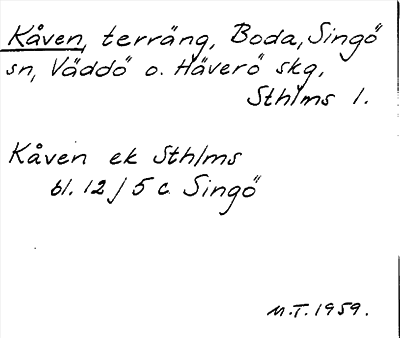 Kåven, terräng, Boda, Singö
sn, Väddö o. Häverö skg,
Sthlms l.
Kåven ek Sthlms
bl. 12 j 5 c Singö
M.T. 1959.